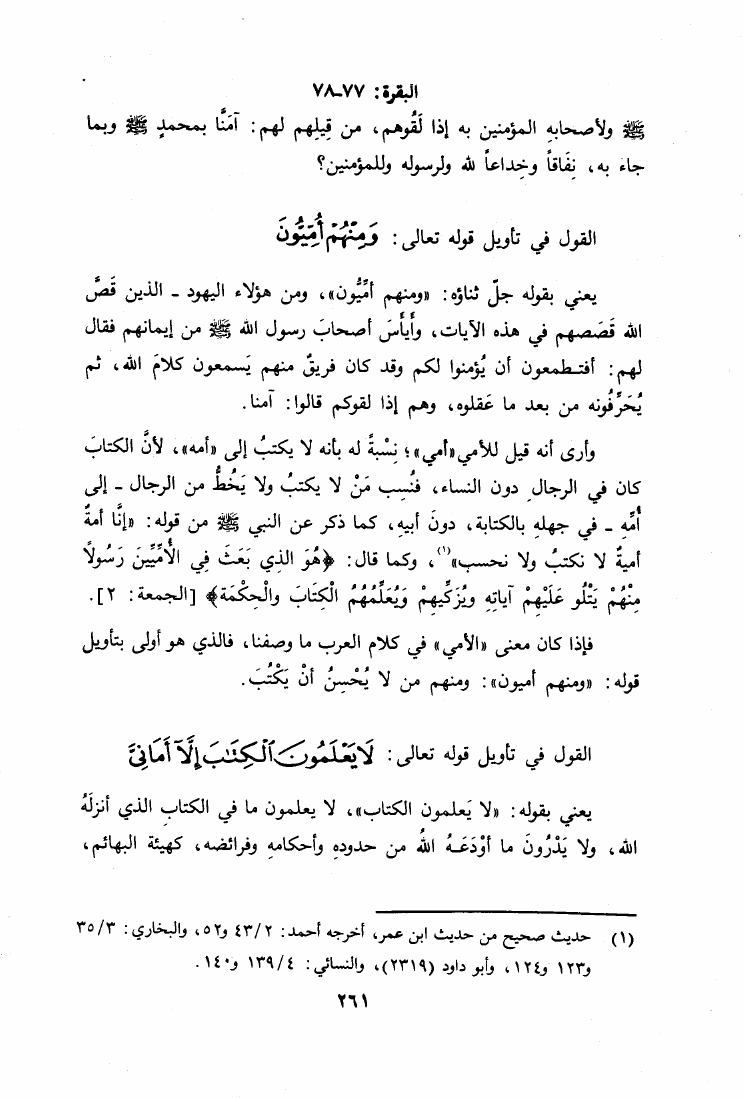 البقرة: ٧٧-٧٨
ﷺ ولأصحابه المؤمنين به إذا لَقُوهم، من قِيلِهم لهم: آمَنَّا بمحمدٍ ﷺ وبما
جاءَ به، نِفَاقاً وخِداعاً لله ولرسوله وللمؤمنين؟
القول في تأويل قوله تعالى: وَمِنْهُمْ أُمِّيُّونَ
يعني بقوله جلّ ثناؤه: «ومنهم أمِّيُّون»، ومن هؤلاء اليهود ـ الذين قَصَّ
الله قَصَصهم في هذه الآيات، وأَيأَسَ أصحابَ رسول الله ﷺ من إيمانهم فقال
لهم: أفتـطمعون أن يُؤمنوا لكم وقد كان فريقٌ منهم يَسمعون كلامَ الله، ثم
يُحَرِّفُونه من بعد ما عَقلوه، وهم إذا لقوكم قالوا: آمنا.
وأرى أنه قيل للأمي «أمي»؛ نِسْبةً له بأنه لا يكتبُ إلى «أمه»، لأنَّ الكتابَ
كان في الرجالِ دون النساء، فنُسِب مَنْ لا يكتبُ ولا يَخُطُّ من الرجال ـ إلى
أُمِّه ـ في جهلهِ بالكتابة، دونَ أبيهِ، كما ذكر عن النبي ﷺ من قوله: «إنَّا أمةٌ
أميةٌ لا نكتبُ ولا نحسب»(١)، وكما قال: ﴿هُوَ الذي بَعَثَ فِي الْأُمِّيِّينَ رَسُولاً
مِنْهُمْ يَتْلُو عَلَيْهِمْ آياتِهِ ويُزَكِّيهِمْ وَيُعَلِّمُهُمُ الْكِتَابَ والْحِكْمَة﴾ [الجمعة: ٢].
فإذا كان معنى «الأمي» في كلام العرب ما وصفنا، فالذي هو أولى بتأويل
قوله: «ومنهم أميون»: ومنهم من لا يُحْسِنُ أنْ يَكْتُبَ.
القول في تأويل قوله تعالى: لَا يَعْلَمُونَ ٱلْكِتَٰبَ إِلَّآ أَمَانِيَّ
يعني بقوله: «لا يَعلمون الكتاب»، لا يعلمون ما في الكتابِ الذي أنزلَهُ
الله، ولا يَدْرُونَ ما أوْدَعَـهُ اللهُ من حدودهِ وأحكامهِ وفرائضه، كهيئة البهائم،
(١) حديث صحيح من حديث ابن عمر، أخرجه أحمد: ٤٣/٢ و٥٢، والبخاري: ٣٥/٣
و١٢٣ و١٢٤، وأبو داود (٢٣١٩)، والنسائي: ١٣٩/٤ و١٤٠.
٢٦١